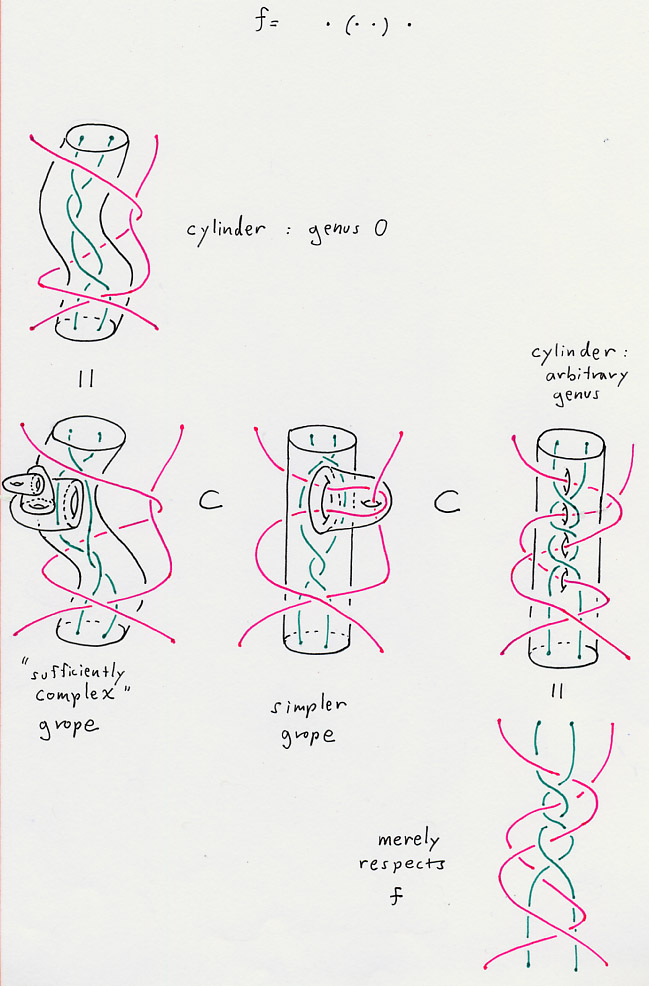 f= · (· ·) ·
cylinder : genus 0
=
cylinder :
arbitrary
genus
⊂ ⊂
"sufficiently
complex"
grope
simpler
grope
=
merely
respects
f